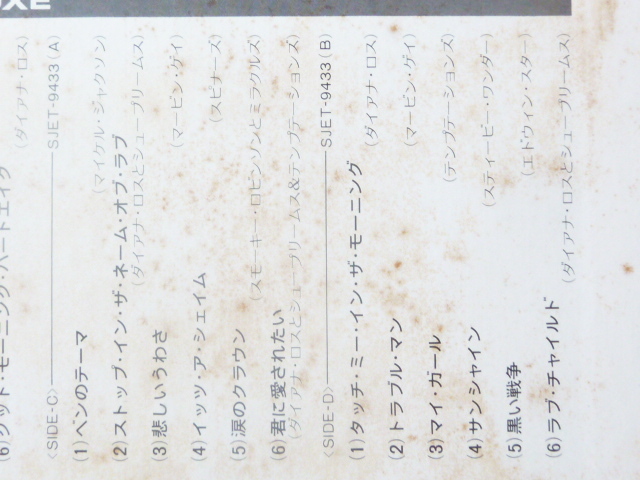 UXE
(6)グッド・モーニング・ハートエイク (ダイアナ・ロス)
〈SIDE-C〉 SJET-9433(A)
(1)ベンのテーマ (マイケル・ジャクソン)
(2)ストップ・イン・ザ・ネーム・オブ・ラブ
(ダイアナ・ロスとシュープリームス)
(3)悲しいうわさ (マービン・ゲイ)
(4)イッツ・ア・シェイム (スピナーズ)
(5)涙のクラウン (スモーキー・ロビンソンとミラクルズ)
(6)君に愛されたい
(ダイアナ・ロスとシュープリームス&テンプテーションズ)
〈SIDE-D〉 SJET-9433(B)
(1)タッチ・ミー・イン・ザ・モーニング (ダイアナ・ロス)
(2)トラブル・マン (マービン・ゲイ)
(3)マイ・ガール (テンプテーションズ)
(4)サンシャイン (スティービー・ワンダー)
(5)黒い戦争 (エドウィン・スター)
(6)ラブ・チャイルド (ダイアナ・ロスとシュープリームス)